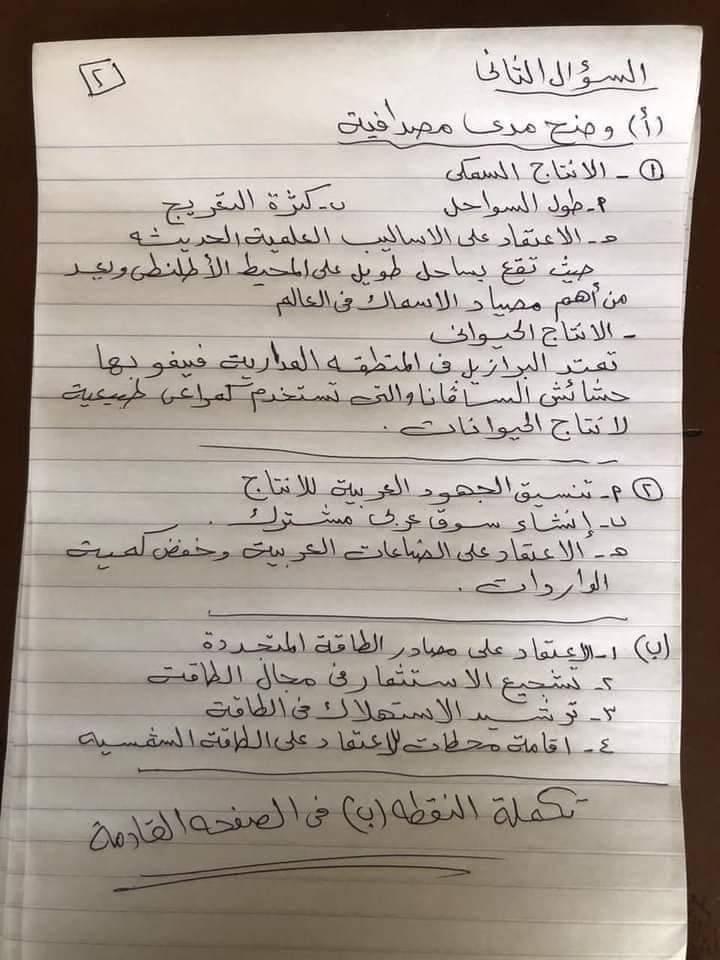 ٢
السؤال الثانى
(أ) وضح مدى مصداقية
① - الانتاج السمكى
٩- طول السواحل ب- كثرة التعريج
ھ- الاعتقاد على الاساليب العلمية الحديثه
حيث تقع بساحل طويل على المحيط الأطلنطى ويعد
من أهم مصايد الاسماك فى العالم
- الانتاج الحيوانى
تمتد البرازيل فى المنطقه المدارية فينمو بها
حشائش الساڤانا والتى تستخدم كمراعى طبيعية
لانتاج الحيوانات .
② ٩- تنسيق الجهود العربية للانتاج
ب- إنشاء سوق عربى مشترك .
ھ- الاعتقاد على الصناعات العربية وخفض كمية
الواردات .
(ب) ١- الاعتقاد على مصادر الطاقة المتجددة
٢- تشجيع الاستثمار فى مجال الطاقة
٣- ترشيد الاستهلاك فى الطاقة
٤- اقامة محطات للاعتقاد على الطاقة الشمسيه
تكملة النقطه (ب) فى الصفحه القادمة